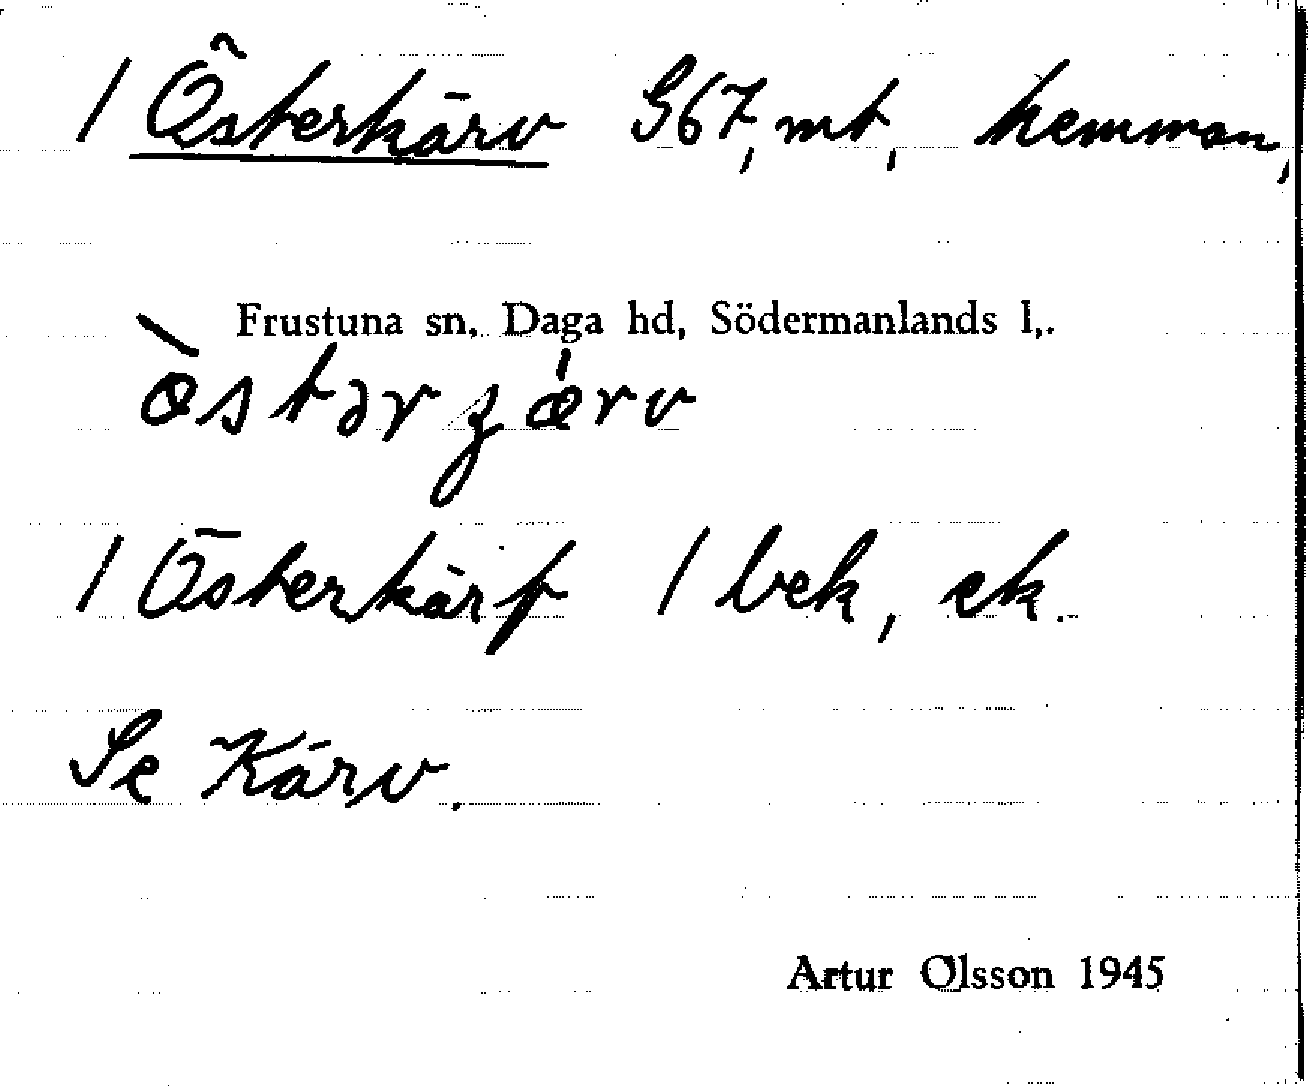 / Österkärv G67, mt, hemman,
Frustuna sn, Daga hd, Södermanlands l,.
/ Österkärf / bek, ek.
Se Kärv.
Artur Olsson 1945